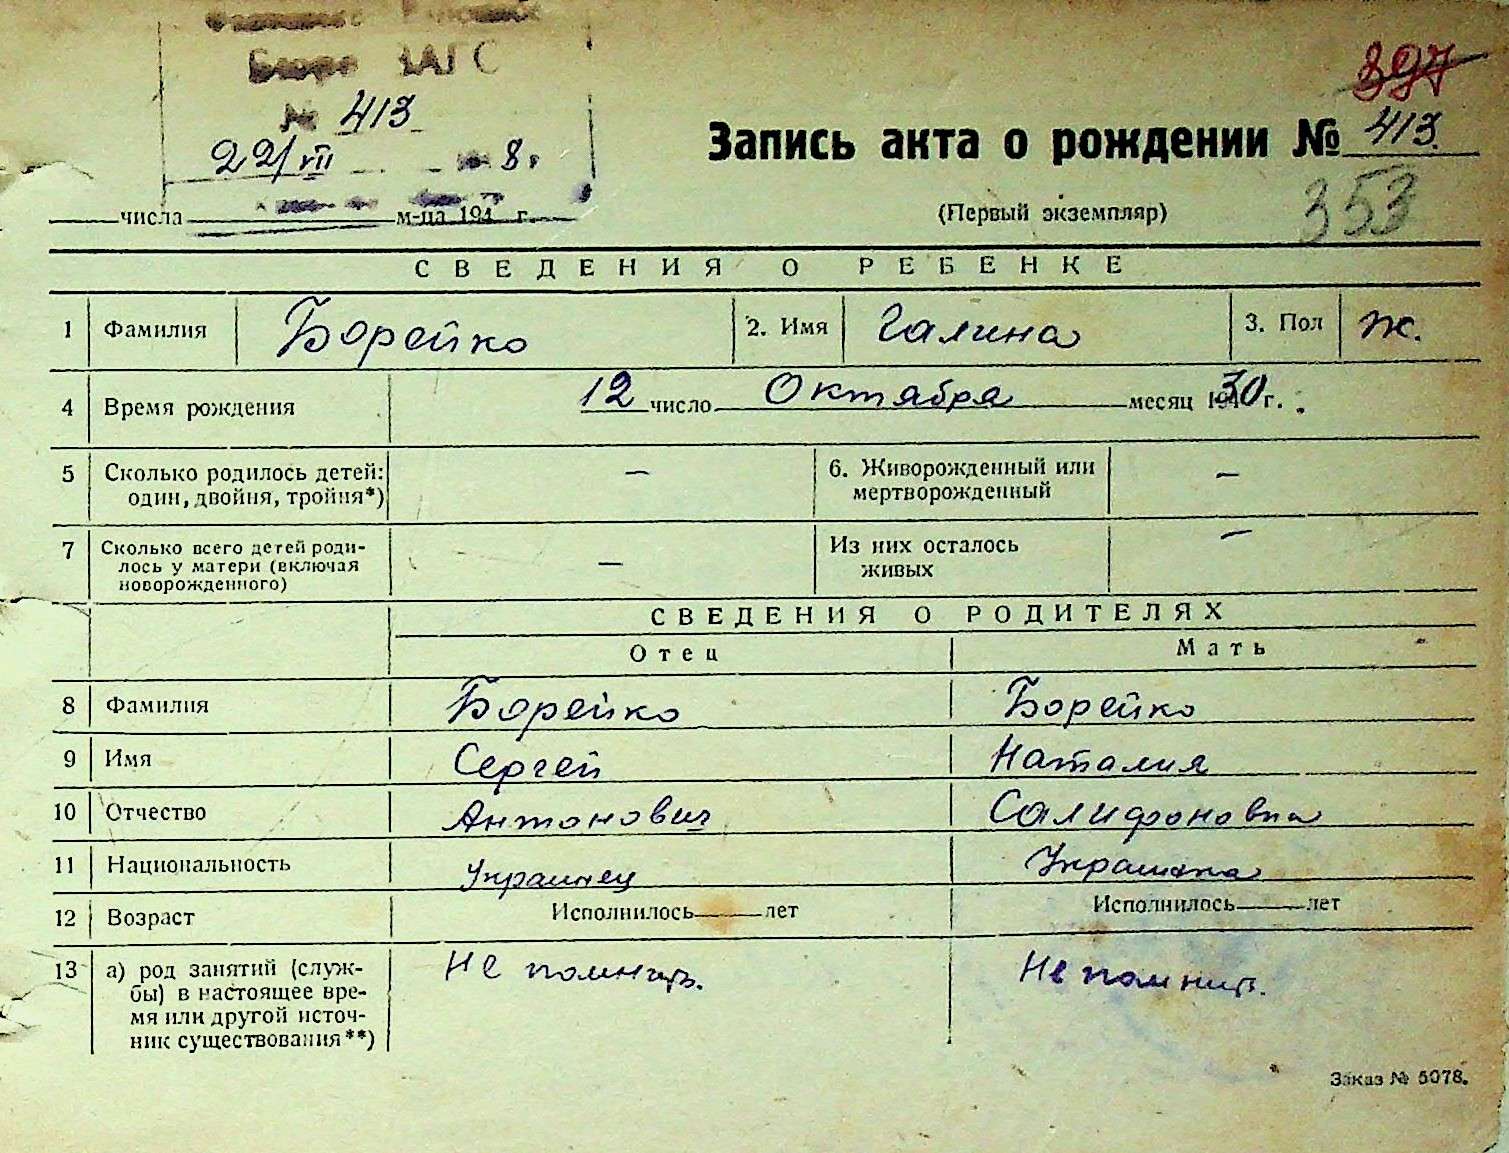 Бюро ЗАГС
№ 413
22/VII 8 г
397
Запись акта о рождении № 413.
числа м-ца 194 г.
(Первый экземпляр)
353
СВЕДЕНИЯ О РЕБЕНКЕ
1 Фамилия Борейко 2. Имя Галина 3. Пол ж.
4 Время рождения 12 число Октября месяц 1930 г.
5 Сколько родилось детей: — 6. Живорожденный или —
один, двойня, тройня*) мертворожденный
7 Сколько всего детей роди- — Из них осталось —
лось у матери (включая живых
новорожденного)
СВЕДЕНИЯ О РОДИТЕЛЯХ
Отец Мать
8 Фамилия Борейко Борейко
9 Имя Сергей Наталия
10 Отчество Антонович Салифоновна
11 Национальность Украинец Украинка
12 Возраст Исполнилось — лет Исполнилось — лет
13 а) род занятий (служ- Не помнит. Не помнит.
бы) в настоящее вре-
мя или другой источ-
ник существования**)
Заказ № 5078.